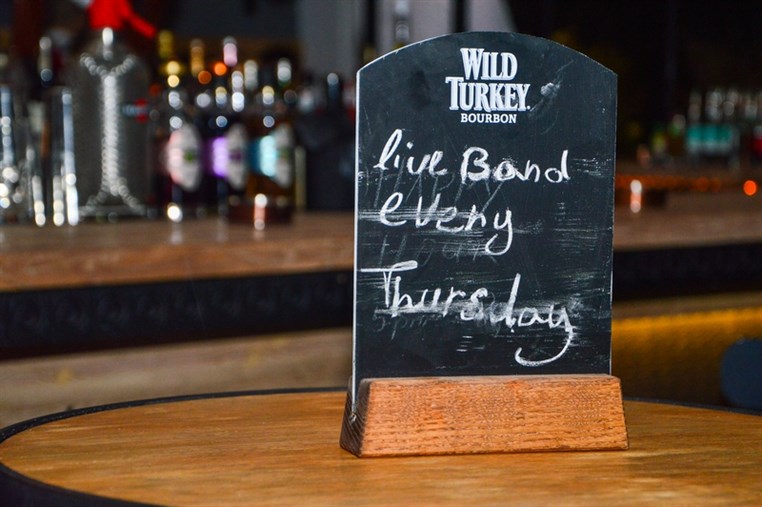 WILD
TURKEY
BOURBON
live Band
every
Thursday